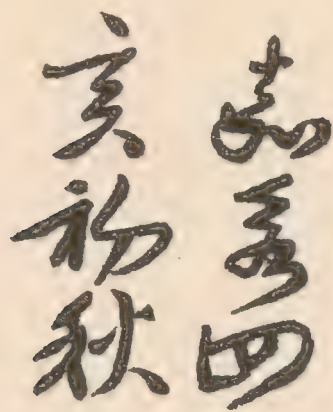 嘉永四
亥初秋